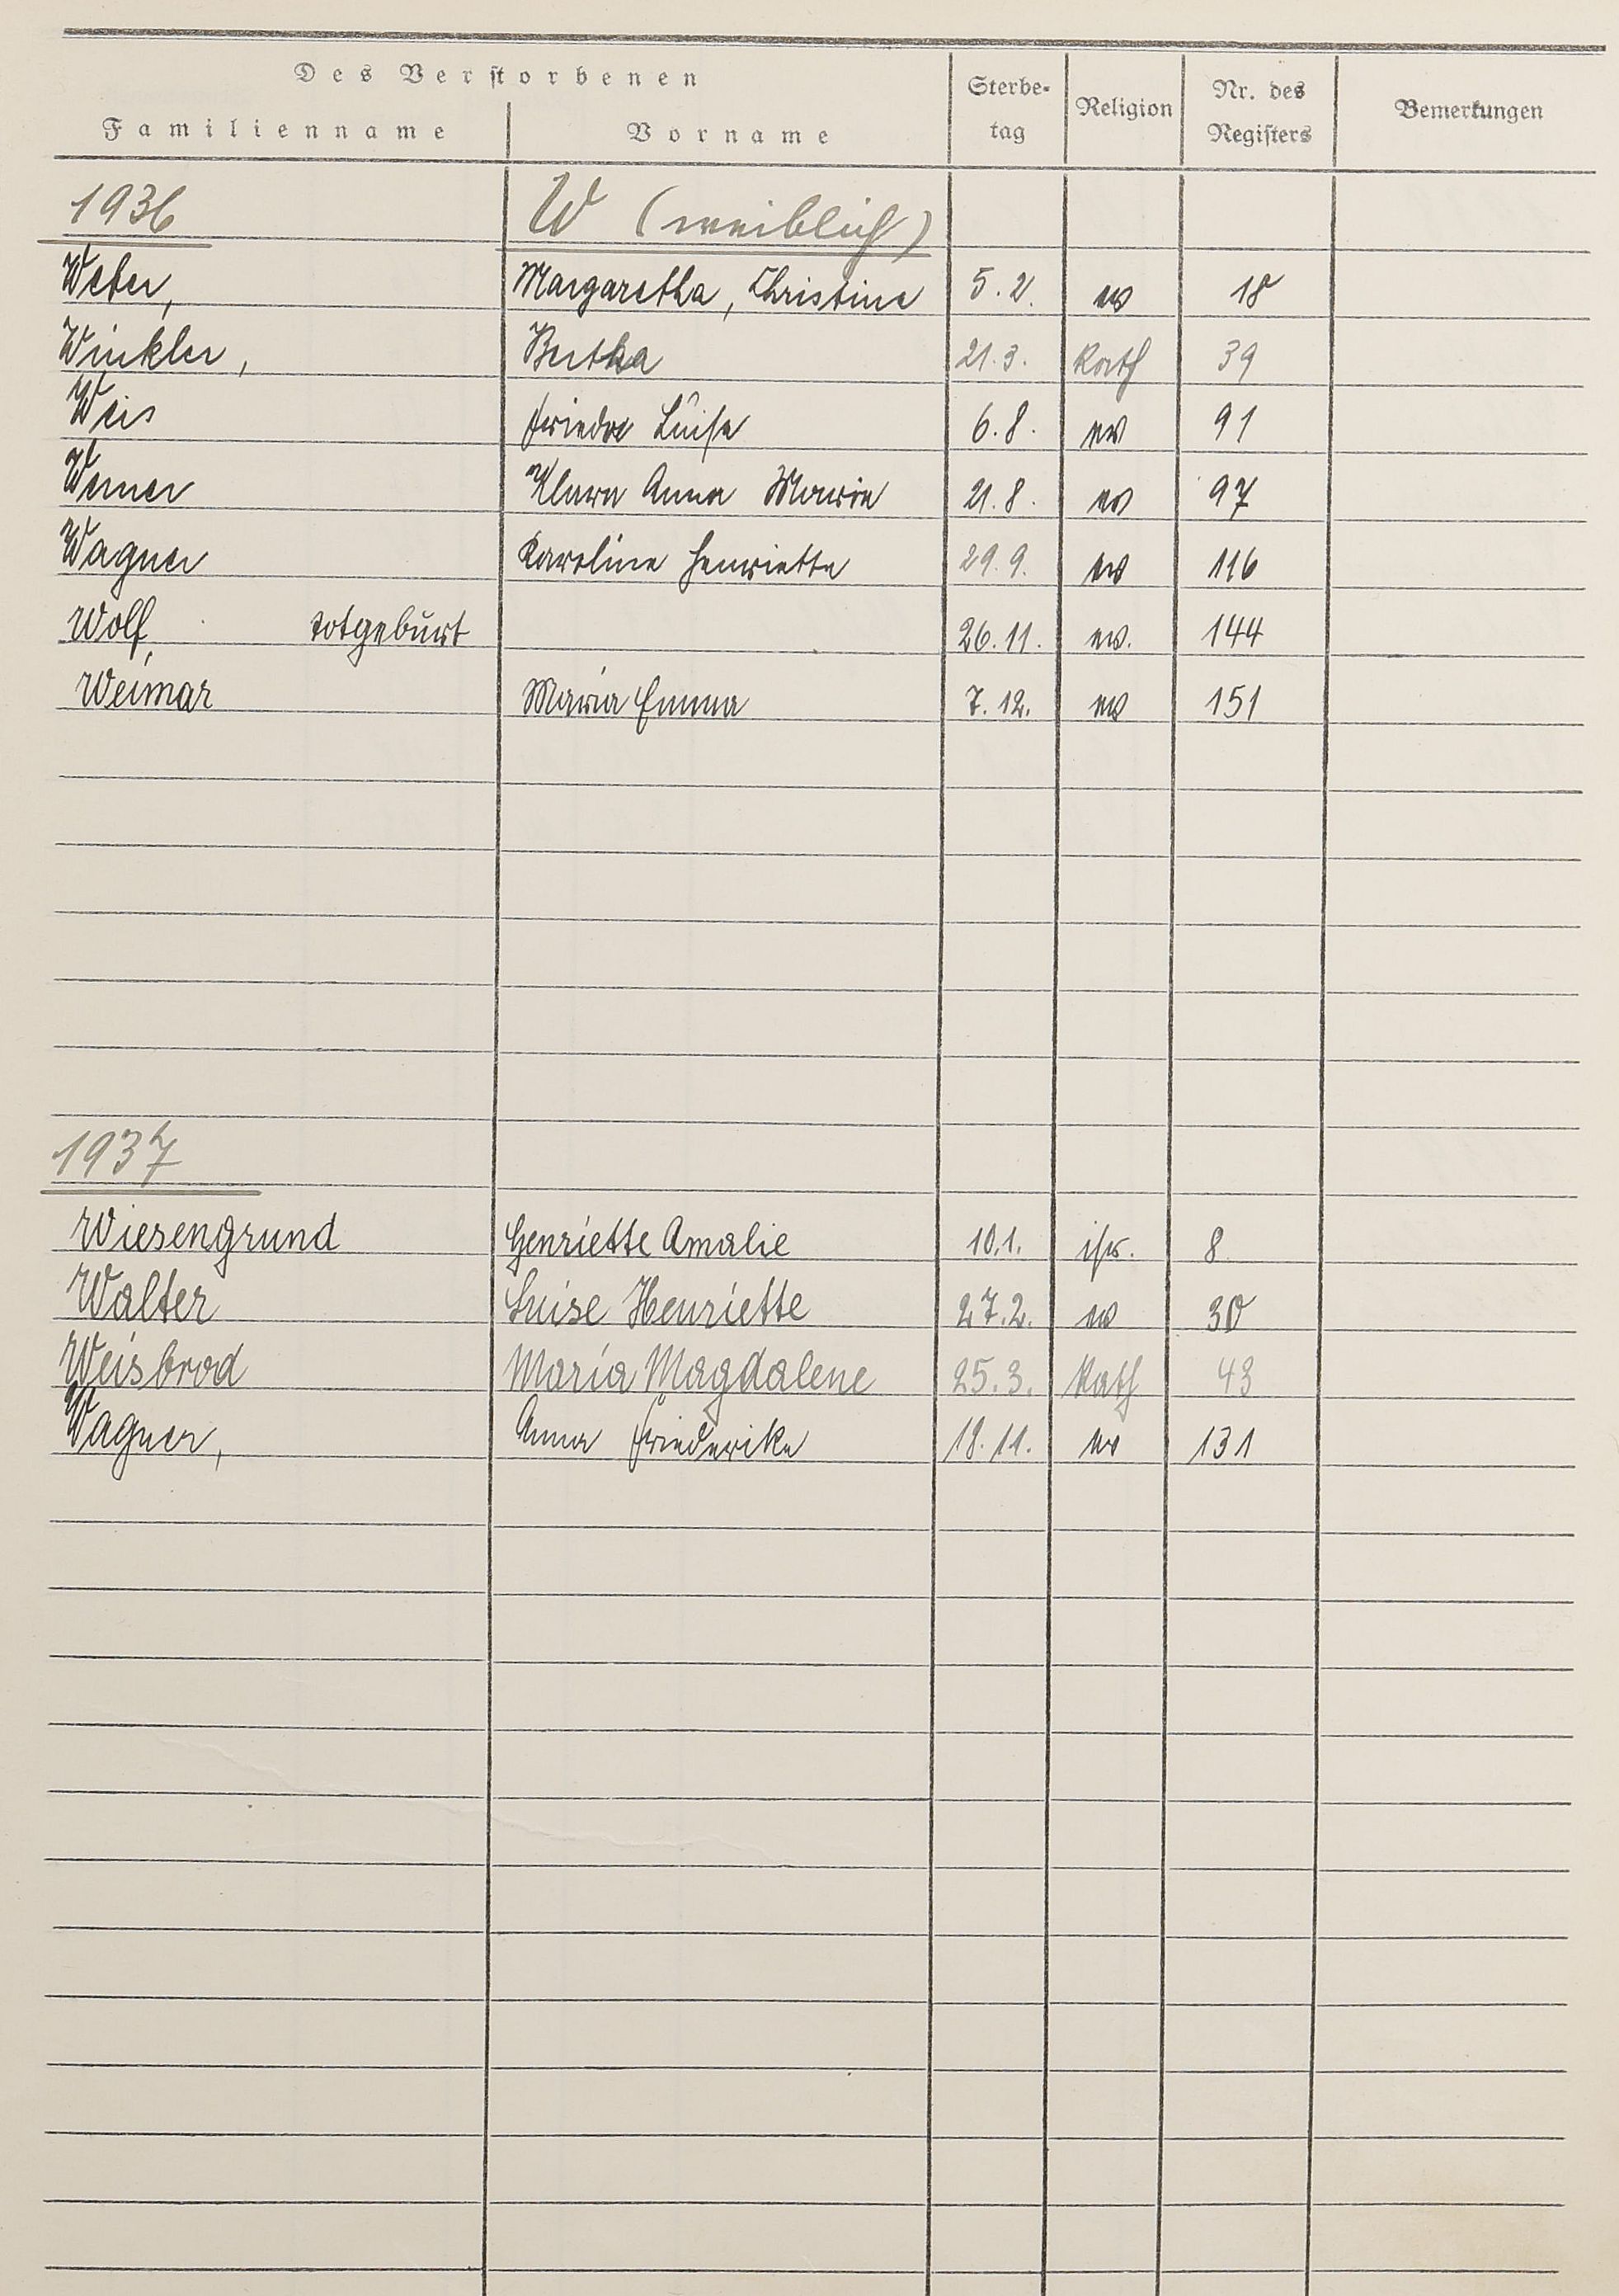 Des Verstorbenen
Familienname Vorname Sterbe-tag Religion Nr. des Registers Bemerkungen
1936 W (weiblich)
Weber, Margaretha, Christine 5.2. ev 18
Winkler, Bertha 21.3. Kath 39
Weis Frieda Luise 6.8. ev 91
Werner Klara Anna Maria 21.8. ev 97
Wagner Karoline Henriette 29.9. ev 116
Wolf, Totgeburt 26.11. ev. 144
Weimar Maria Emma 7.12. ev 151
1937
Wiesengrund Henriette Amalie 10.1. isr. 8
Walter Luise Henriette 27.2. ev 30
Weisbrod Maria Magdalene 25.3. Kath 43
Wagner, Anna Friederike 18.11. ev 131